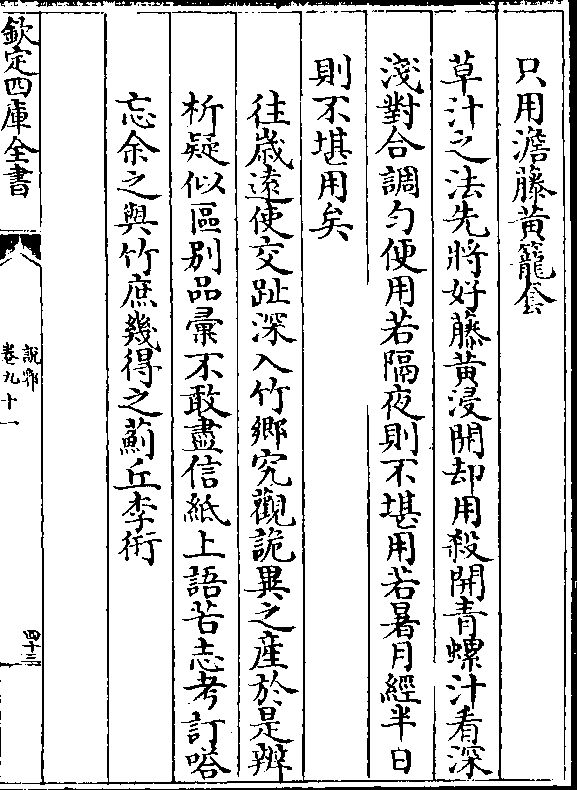 只用澹藤黃籠套
草汁之法先將好藤黃浸開却用殺開青螺汁看深
淺對合調勻便用若隔夜則不堪用若暑月經半日
則不堪用矣
往歲遠使交趾深入竹鄉究觀詭異之產於是辨
析疑似區别品彙不敢盡信紙上語苦志考訂嗒
忘余之與竹庶幾得之薊丘李衎
欽定四庫全書
說郛
卷九十一
四十三